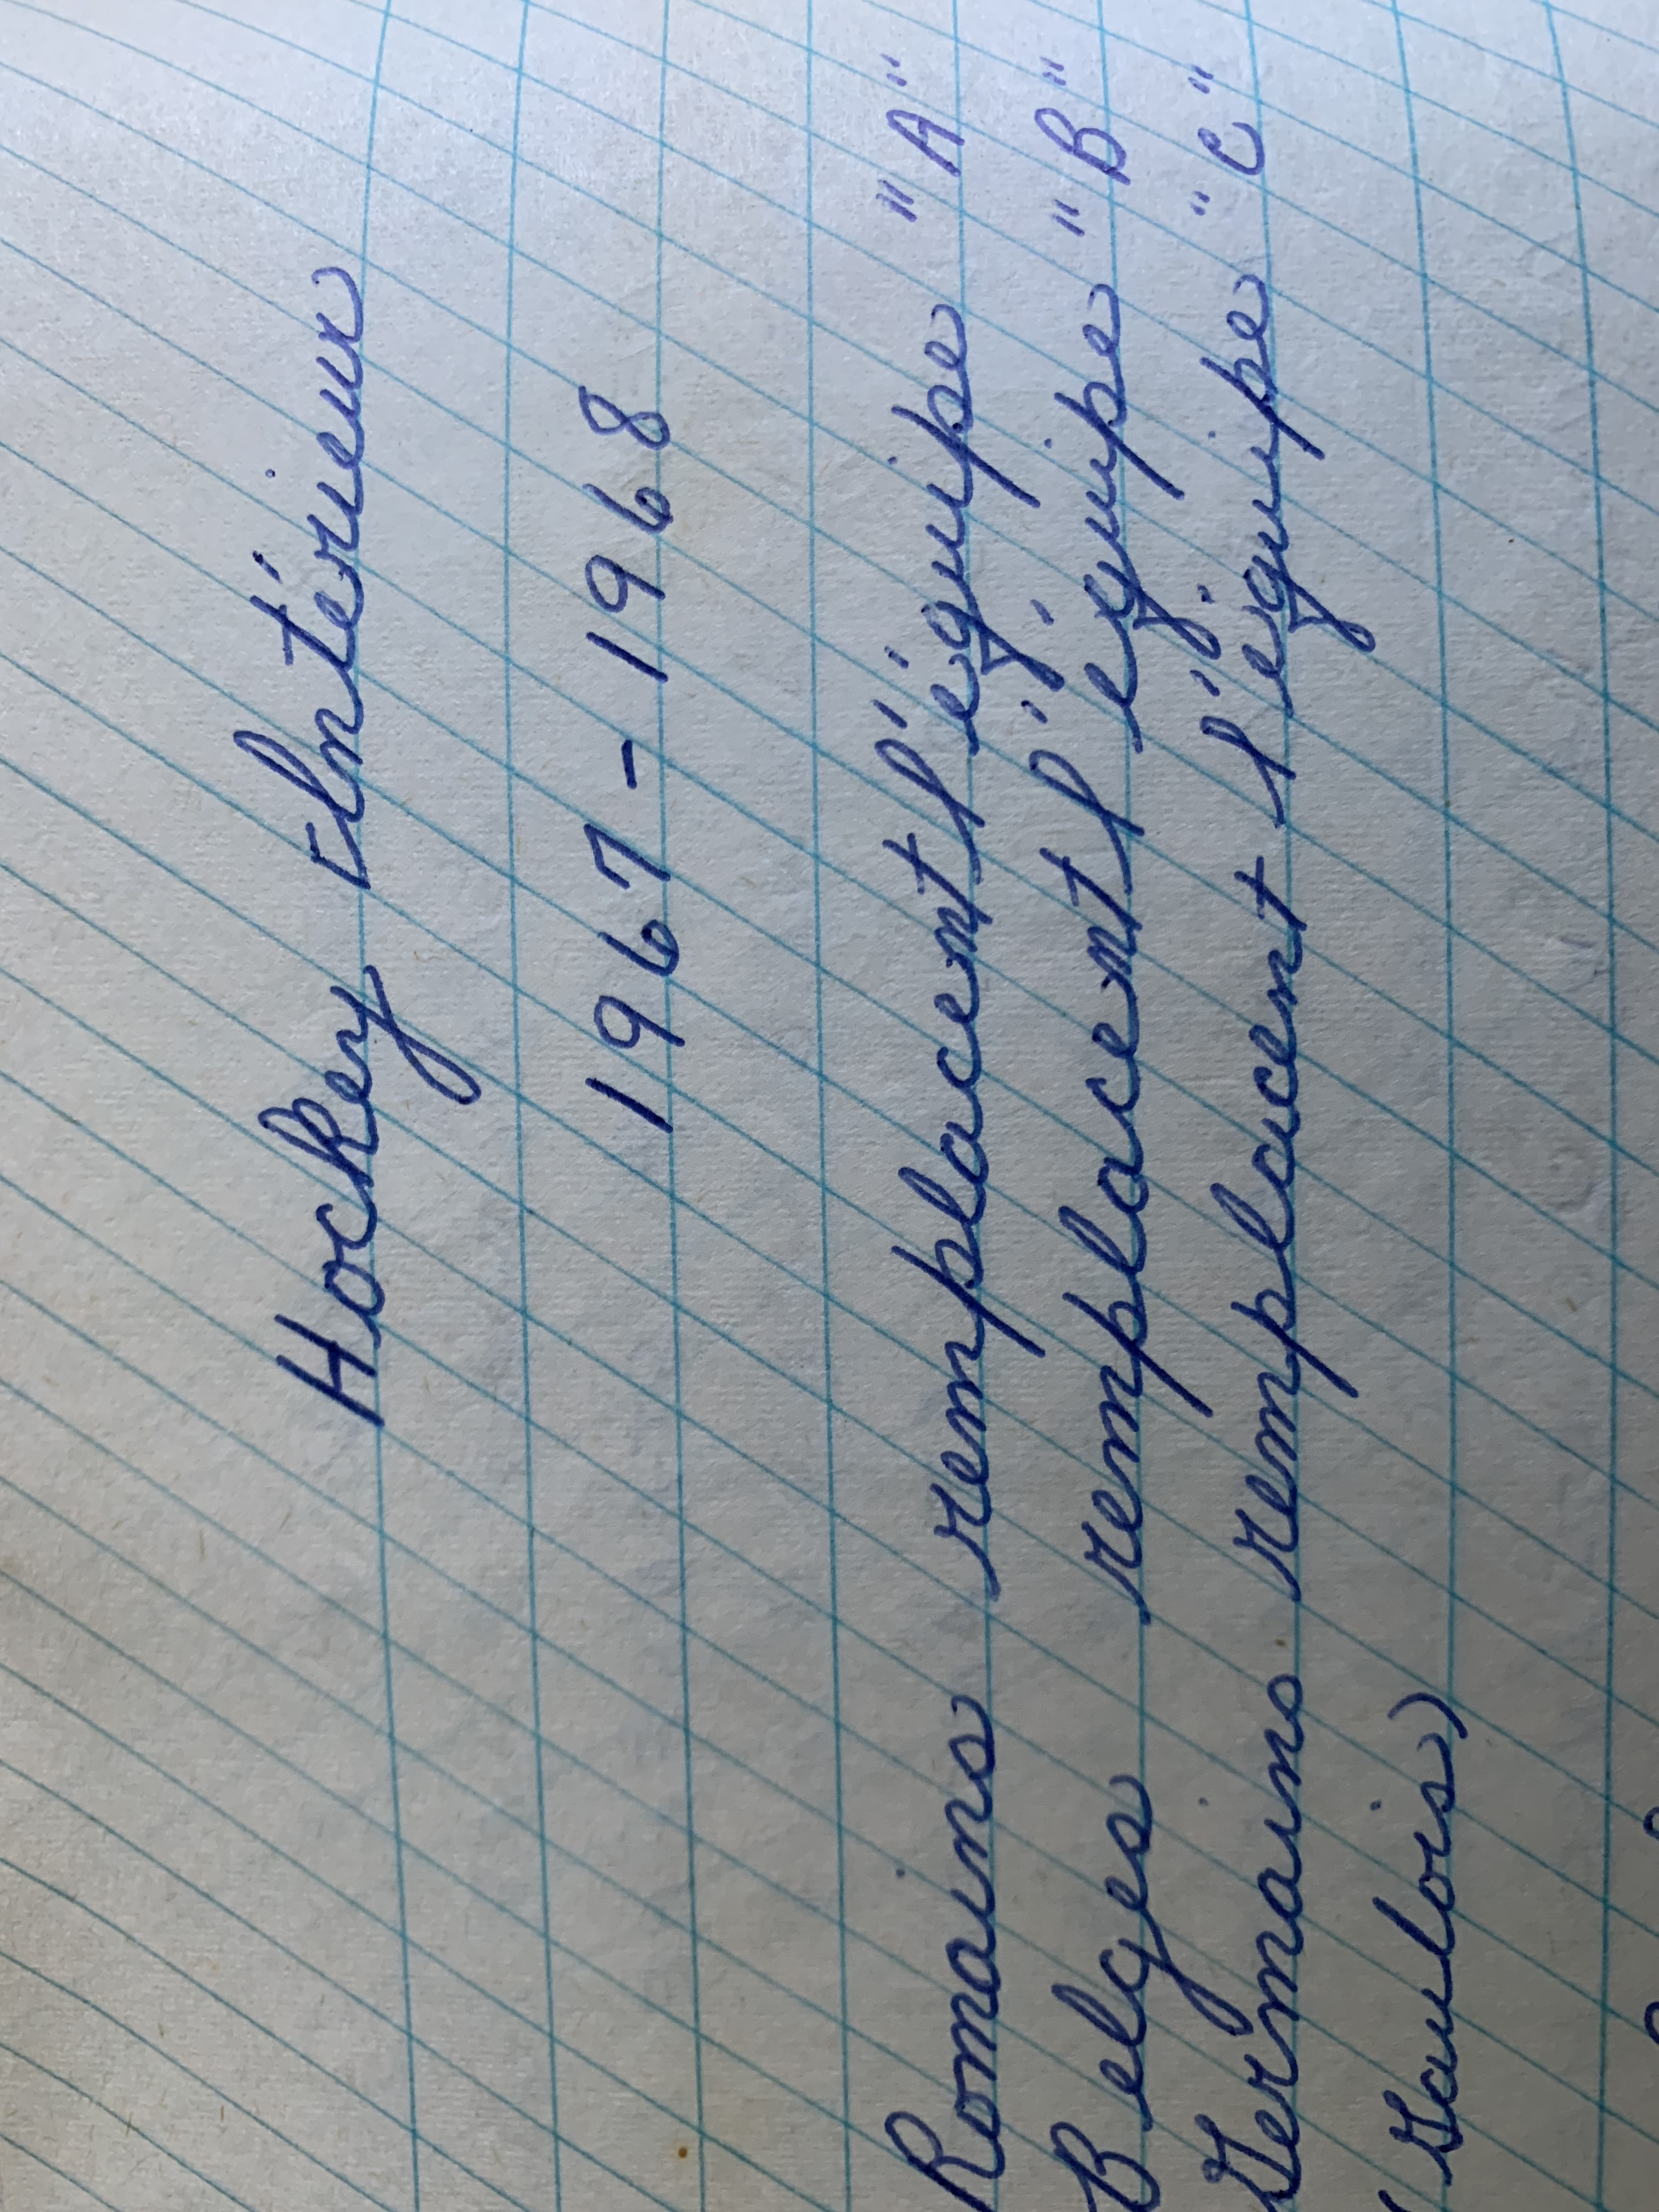 Hockey Intérieur
1967 - 1968
Romains remplacent l'équipe "A"
Belges remplacent l'équipe "B"
Germains remplacent l'équipe "C"
(Gaulois)